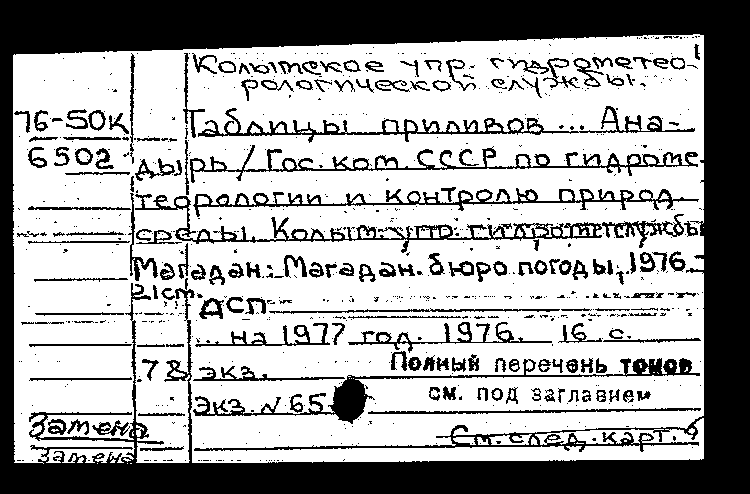 Колымское упр. гидрометео-
рологической службы.
76-50к Таблицы приливов ... Ана-
6502 дырь / Гос. ком. СССР по гидроме-
теорологии и контролю природ.
среды. Колым. упр. гидрометслужбы
Магадан: Магадан. бюро погоды, 1976.-
21 см. ДСП
... на 1977 год. 1976. 16 с.
78 экз. Полный перечень томов
экз. №65 см. под заглавием
Замена См. след. карт.
Замена